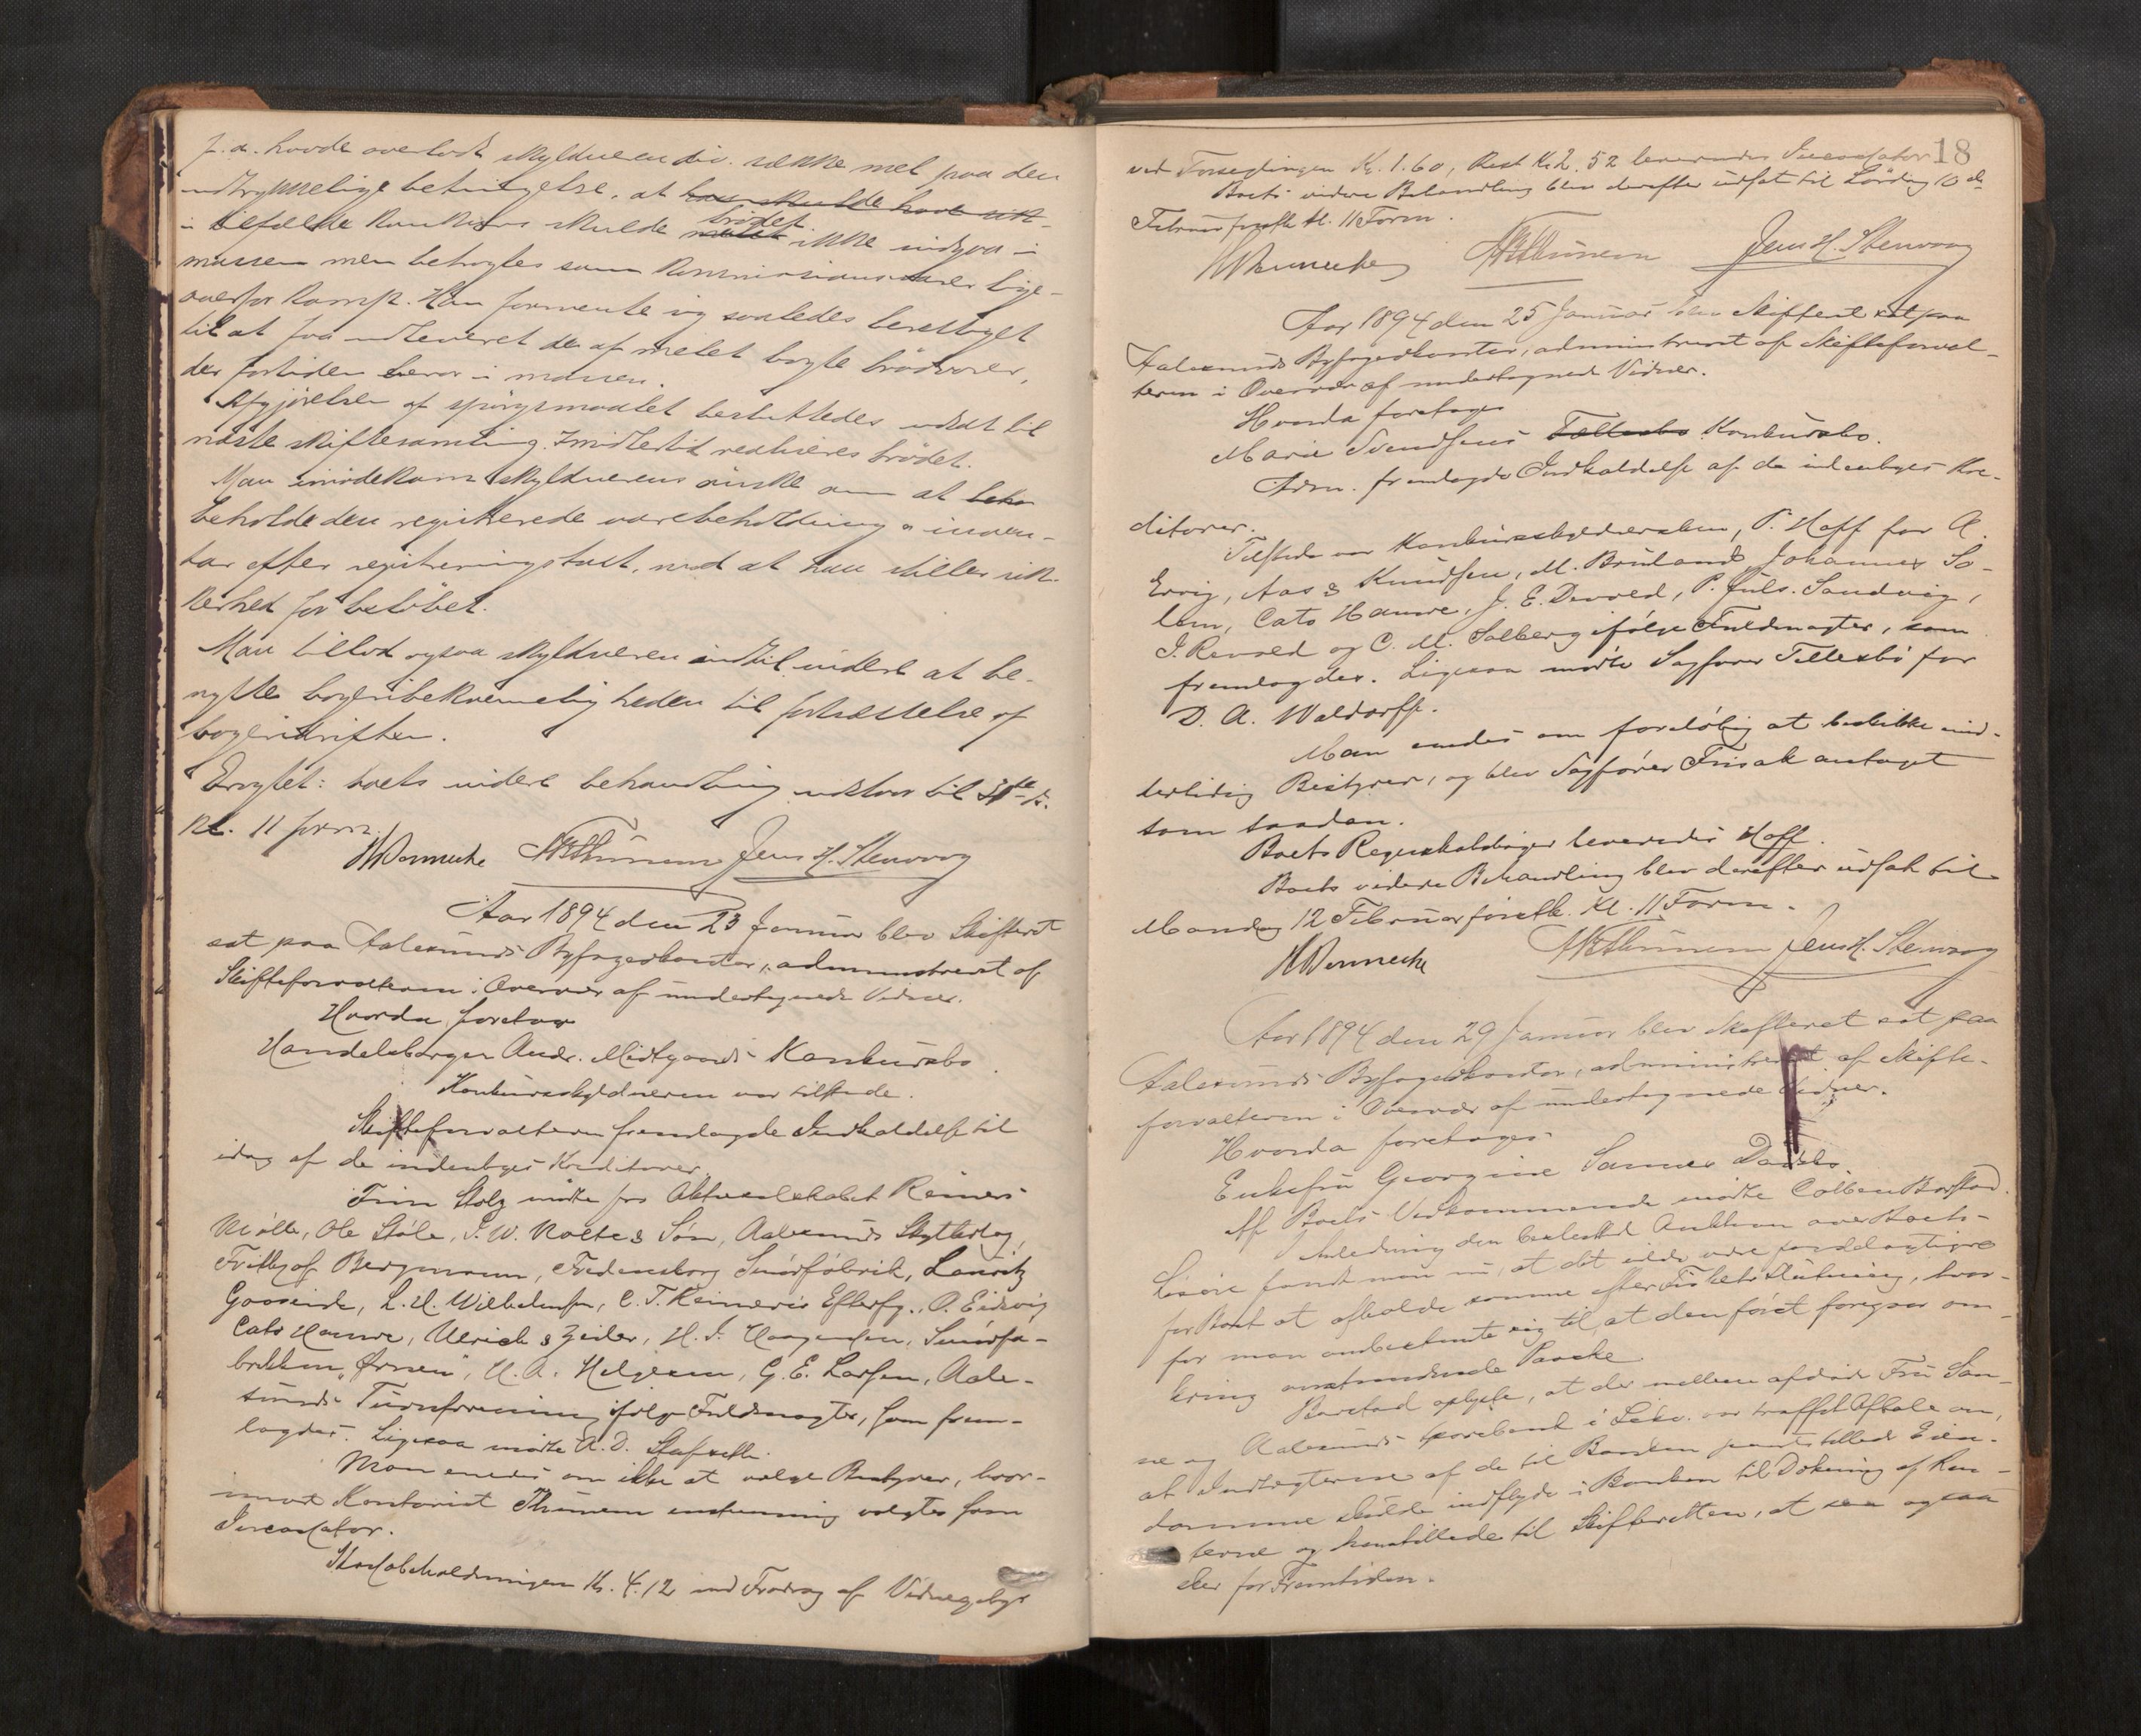 f. a. havde overladt skyldneren div. sække mel paa den
udtrykkelige betingelse, at han skulde have sik-
i tilfælde konkurs skulde melet brødet ikke indgaa i
massen men betragtes som kommissionsvarer lige-
overfor komp. Han formente sig saaledes berettiget
til at faa udleveret de af melet bagte brødvarer,
der fortiden beror i massen.
Afgjørelsen af spørgsmaalet besluttedes udsat til
næste skiftesamling. Imidlertid realiseres brødet.
Man imødekom skyldnerens ønske om at beho
beholde den registrerede varebeholdning & inven-
tar efter registreringstaxt, mod at han stiller sik-
kerhed for beløbet.
Man tillod ogsaa skyldneren indtil videre at be-
nytte bageribekvemmeligheden til fortsættelse af
bageridriften.
Eragtet: boets videre behandling udstaar til
kl. 11 form.
HWennecke NThunem Jens H. Stenvaag
Aar 1894 den 23 Januar blev Skifteret
sat paa Aalesunds Byfogedkontor, administreret af
Skifteforvalteren i Overvær af undertegnede Vidner.
Hvorda foretoges
Handelsborger Andr. Midtgaards Konkursbo.
Konkursskyldneren var tilstede.
Skifteforvalteren fremlagde Indkaldelse til
idag af de indenbyes Kreditorer.
Finn Stolz mødte for Aktieselskabet Reimers
Mølle, Ole Støle, Søn, Aalesunds Skytterlag,
Frithjof Bergmann, Fredensborg Smørfabrik, Lauritz
L. H. Wilhelmsen, C. T. Reimers Efterfg., O. Eidsvig
Cato Hamre, Ulrich & Zeiler, H. J. Haagensen, Smørfa-
brikken "Ørnen", H. A. Helgesen, G. E. Larsen, Aale-
sunds Turnforening ifølge Fuldmagter, som frem-
lagdes. Ligesaa mødte A. D. Stafseth.
Man enedes om ikke at vælge Bestyrer, hvor-
imod Kontorist Thunem enstemmig valgtes som
Incassator.
Kassabeholdningen Kr. 4.12 med Fradrag af Vidnegebyr
18
ved Forseglingen Kr. 1.60, Rest Kr. 2.52 leveredes Incassator
Boets videre Behandling blev derefter udsat til Lørdag 10 de
Februar førstk. kl. 11 Form.
HWennecke NThunem Jens H. Stenvaag
Aar 1894 den 25 Januar blev Skifteret sat paa
Aalesunds Byfogedkontor, administreret af Skifteforval-
teren i Overvær af undertegnede Vidner.
Hvorda foretoges
Marie Svendsens Fællesbo Konkursbo.
Adm. fremlagde Indkaldelse af de indenbyes Kre-
ditorer.
Tilstede var Konkursskyldnersken, P. Hoff for A.
Ervig, Aas & Knudsen, M. Bruland, Johannes So-
lem, Cato Hamre, J. E. Devold, P. Juls. Sandvig,
I. Revold og C. M. Solberg ifølge Fuldmagter, som
fremlagdes. Ligesaa mødte Sagfører Tellesbø for
D. A. Waldorff.
Man enedes om foreløbig at beskikke mid-
lertidig Bestyrer, og blev Sagfører Frisak antaget
som saadan.
Boets Regnskabsbøger leveredes Hoff.
Boets videre Behandling blev derefter udsat til
Mandag 12 Februar førstk. Kl. 11 Form.
HWennecke NThunem Jens H. Stenvaag
Aar 1894 den 29 Januar blev Skifteret sat paa
Aalesunds Byfogedkontor, administreret af Skifte-
forvalteren i Overvær af undertegnede Vidner.
Hvorda foretoges
Enkefru Georgine Sannes Dødsbo.
Af Boets Vedkommende mødte Colben Barstad.
I Anledning den besluttede Auktion over Boets
Løsøre fandt man nu, at det vilde være fordelagtigere
for Boet at afholde samme efter Fiskets Slutning, hvor-
for man ombestemte sig til, at den først foregaar om-
kring anstundende Paaske.
Barstad oplyste, at der mellem afdøde Fru San-
ne og Aalesunds Sparebank i Sekv. var truffet Aftale om,
at Indtægterne af de til Banken pantstillede Eien-
domme skulde indflyde i Banken til Dækning af Ren-
terne og henstillede til Skifteretten, at saa ogsaa
sker for Fremtiden.